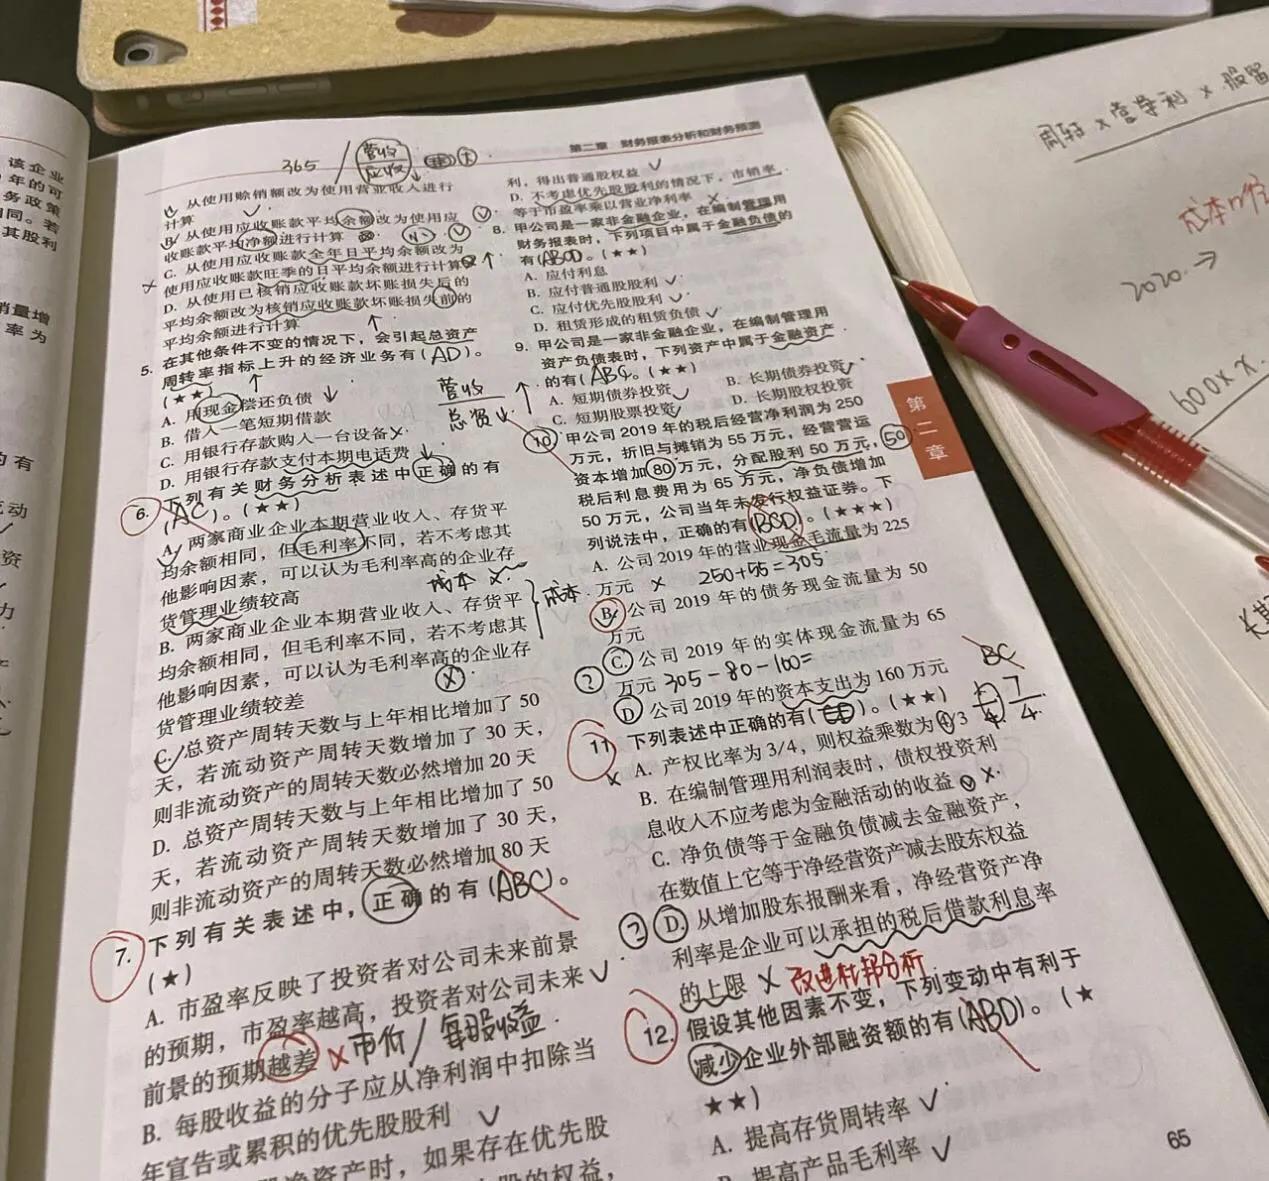 该企业
年的可
务政策
同。若
其股利
销量增
率为
的有
流动
资
力
第二章 财务报表分析和财务预测
365 / 营收 / 应收
A. 从使用赊销额改为使用营业收入进行
计算
B. 从使用应收账款平均余额改为使用应
收账款平均净额进行计算
C. 从使用应收账款全年日平均余额改为
使用应收账款旺季的日平均余额进行计算
D. 从使用已核销应收账款坏账损失后的
平均余额改为核销应收账款坏账损失前的
平均余额进行计算
5. 在其他条件不变的情况下，会引起总资产
周转率指标上升的经济业务有(AD)。
(★★)
营收
总资
A. 用现金偿还负债
B. 借入一笔短期借款
C. 用银行存款购入一台设备
D. 用银行存款支付本期电话费
6. 下列有关财务分析表述中正确的有
(AC)。(★★)
A. 两家商业企业本期营业收入、存货平
均余额相同，但毛利率不同，若不考虑其
他影响因素，可以认为毛利率高的企业存
货管理业绩较高
成本 ×.
B. 两家商业企业本期营业收入、存货平
均余额相同，但毛利率不同，若不考虑其
他影响因素，可以认为毛利率高的企业存
货管理业绩较差
C. 总资产周转天数与上年相比增加了 50
天，若流动资产周转天数增加了 30 天，
则非流动资产的周转天数必然增加 20 天
D. 总资产周转天数与上年相比增加了 50
天，若流动资产周转天数增加了 30 天，
则非流动资产的周转天数必然增加 80 天
7. 下列有关表述中，正确的有(ABC)。
(★)
A. 市盈率反映了投资者对公司未来前景
的预期，市盈率越高，投资者对公司未来
前景的预期越差 × 市价/每股收益
B. 每股收益的分子应从净利润中扣除当
年宣告或累积的优先股股利
净资产时，如果存在优先股
的权益，
利，得出普通股权益
D. 不考虑优先股股利的情况下，市销率
等于市盈率乘以营业净利率
8. 甲公司是一家非金融企业，在编制管理用
财务报表时，下列项目中属于金融负债的
有(ABCD)。(★★)
A. 应付利息
B. 应付普通股股利
C. 应付优先股股利
D. 租赁形成的租赁负债
9. 甲公司是一家非金融企业，在编制管理用
资产负债表时，下列资产中属于金融资产
的有(ABC)。(★★)
A. 短期债券投资 B. 长期债券投资
C. 短期股票投资 D. 长期股权投资
10. 甲公司 2019 年的税后经营净利润为 250
万元，折旧与摊销为 55 万元，经营营运
资本增加 80 万元，分配股利 50 万元，
50
税后利息费用为 65 万元，净负债增加
50 万元，公司当年未发行权益证券。下
列说法中，正确的有(BCD)。(★★★)
A. 公司 2019 年的营业现金毛流量为 225
万元 × 250+55=305
成本
B. 公司 2019 年的债务现金流量为 50
万元
C. 公司 2019 年的实体现金流量为 65
万元 305-80-160=
D. 公司 2019 年的资本支出为 160 万元
BC
11. 下列表述中正确的有( )。(★★)
7
4
A. 产权比率为 3/4，则权益乘数为 4/3
B. 在编制管理用利润表时，债权投资利
息收入不应考虑为金融活动的收益
C. 净负债等于金融负债减去金融资产，
在数值上它等于净经营资产减去股东权益
D. 从增加股东报酬来看，净经营资产净
利率是企业可以承担的税后借款利息率
的上限 × 改进杜邦分析
12. 假设其他因素不变，下列变动中有利于
减少企业外部融资额的有(ABD)。(★
★★)
A. 提高存货周转率
B. 提高产品毛利率
65
第二章
周转×营净利×股留
2020.→
600×